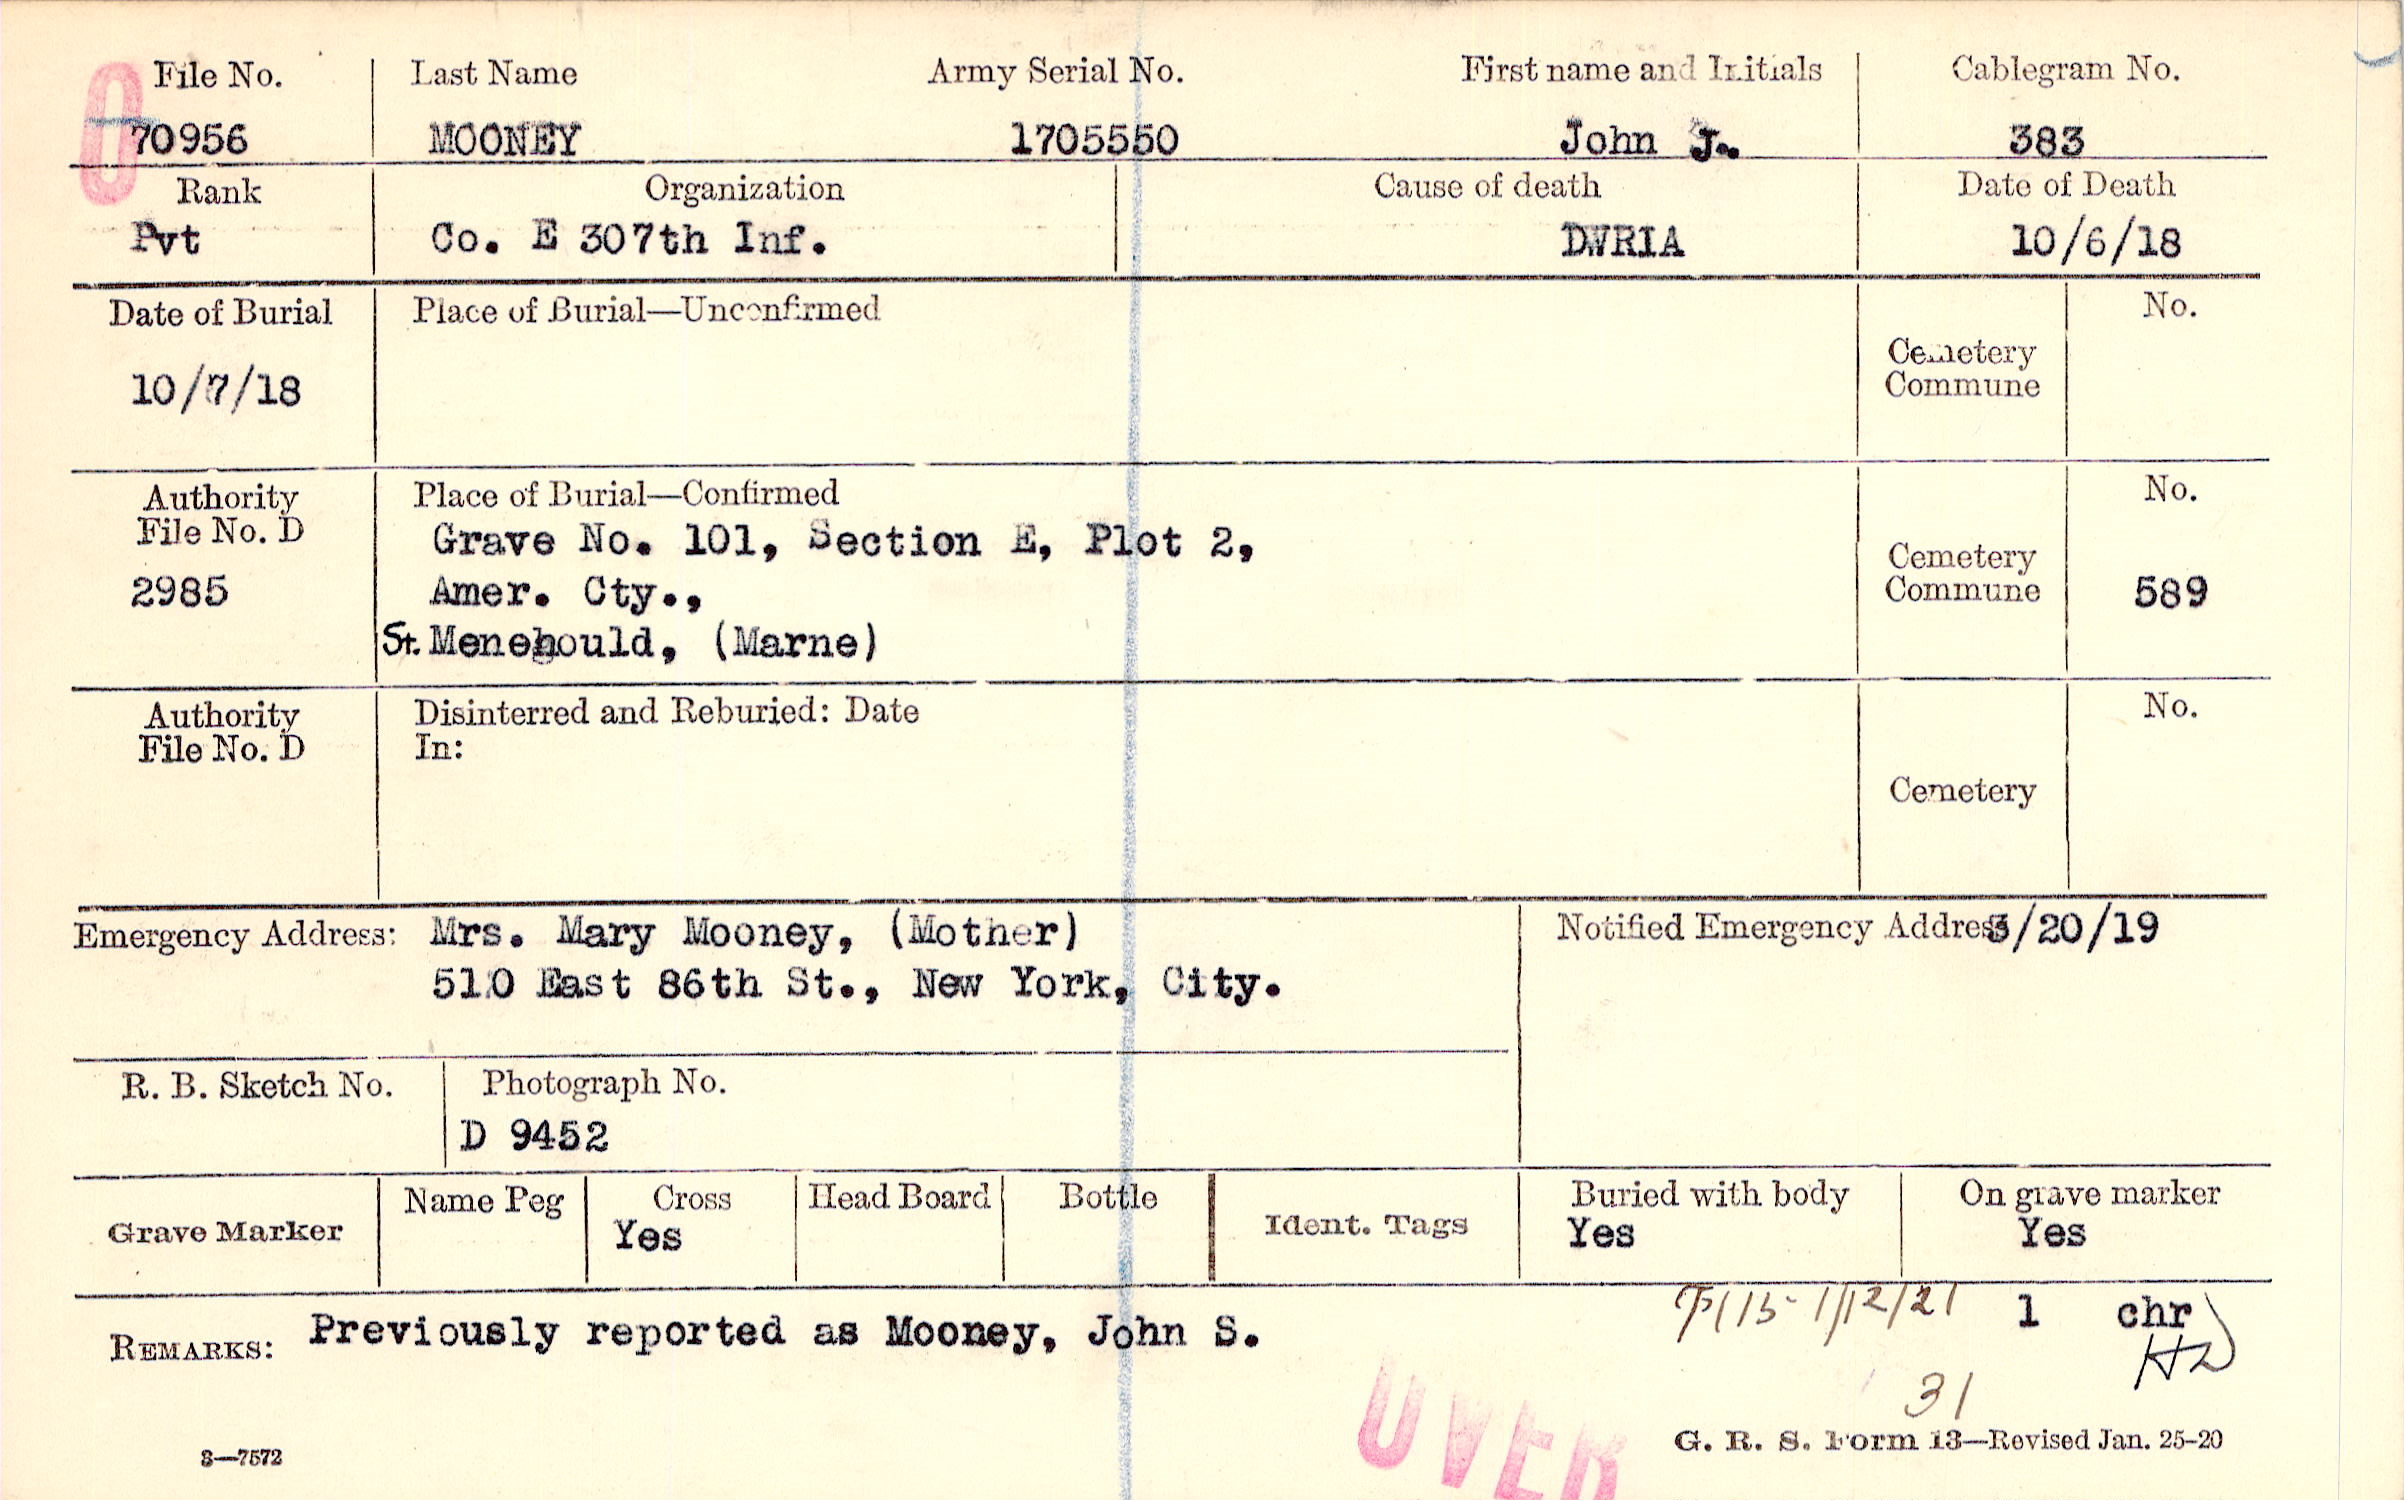 File No. Last Name Army Serial No. First name and Initials Cablegram No.
70956 MOONEY 1705550 John J. 383
Rank Organization Cause of death Date of Death
Pvt Co. E 307th Inf. DWRIA 10/6/18
Date of Burial Place of Burial—Unconfirmed No.
10/7/18 Cemetery
Commune
Authority Place of Burial—Confirmed No.
File No. D Grave No. 101, Section E, Plot 2,
2985 Amer. Cty., Cemetery
Commune 589
St. Menehould, (Marne)
Authority Disinterred and Reburied: Date No.
File No. D In:
Cemetery
Emergency Address: Mrs. Mary Mooney, (Mother) Notified Emergency Address 3/20/19
510 East 86th St., New York, City.
R. B. Sketch No. Photograph No.
D 9452
Grave Marker Name Peg Cross Head Board Bottle Ident. Tags Buried with body On grave marker
Yes Yes Yes
REMARKS: Previously reported as Mooney, John S. 1/12/21 1 chr
31
OVER
3—7572 G. R. S. Form 13—Revised Jan. 25-20